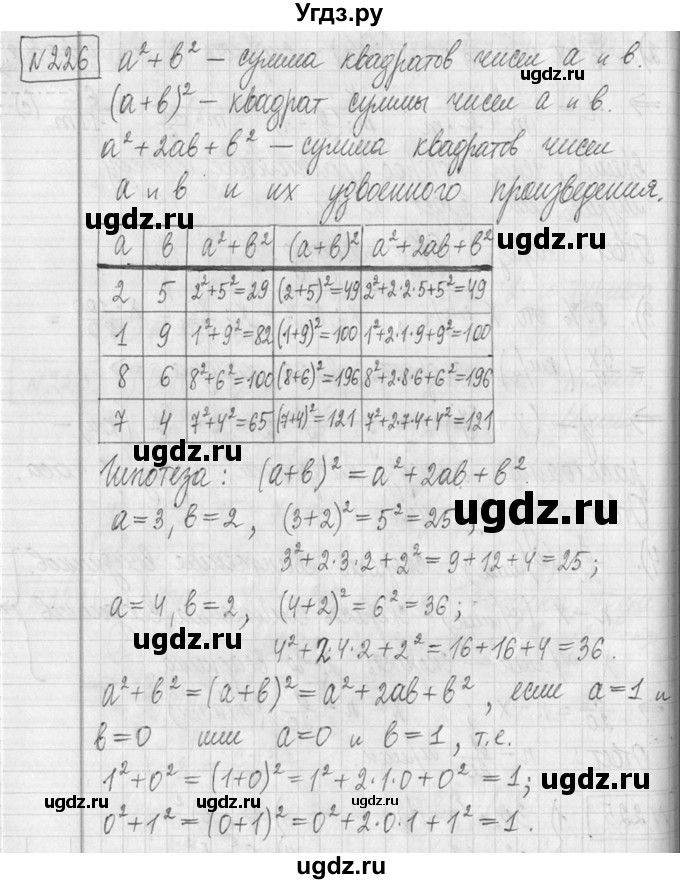 Угдз.ру
№226 a² + b² – сумма квадратов чисел a и b.
ugdz.ru
(a+b)² – квадрат суммы чисел a и b.
a² + 2ab + b² – сумма квадратов чисел
a и b и их удвоенного произведения.
ugdz.ru
ugdz.ru
a b a²+b² (a+b)² a²+2ab+b²
2 5 2²+5²=29 (2+5)²=49 2²+2·2·5+5²=49
1 9 1²+9²=82 (1+9)²=100 1²+2·1·9+9²=100
8 6 8²+6²=100 (8+6)²=196 8²+2·8·6+6²=196
7 4 7²+4²=65 (7+4)²=121 7²+2·7·4+4²=121
ugdz.ru
Гипотеза: (a+b)² = a² + 2ab + b².
ugdz.ru
a=3, b=2, (3+2)² = 5² = 25;
3² + 2·3·2 + 2² = 9 + 12 + 4 = 25;
a=4, b=2, (4+2)² = 6² = 36;
ugdz.ru
ugdz.ru
4² + 2·4·2 + 2² = 16 + 16 + 4 = 36.
a² + b² = (a+b)² = a² + 2ab + b², если a=1 и
b=0 или a=0 и b=1, т.е.
1² + 0² = (1+0)² = 1² + 2·1·0 + 0² = 1;
ugdz.ru ugdz.ru ugdz.ru
0² + 1² = (0+1)² = 0² + 2·0·1 + 1² = 1.
ugdz.ru